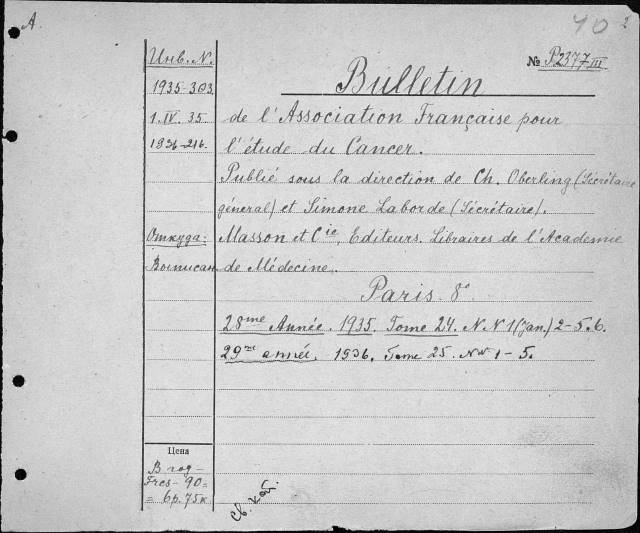 А.
40 2
Инв. N.
№ P2377 III
1935-303
Bulletin
1. IV. 35.
de l'Association Française pour
1936-216.
l'étude du Cancer.
Publié sous la direction de Ch. Oberling (Secrétaire
général) et Simone Laborde (Secrétaire).
Откуда:
Masson et Cie, Editeurs. Libraires de l'Academie
Выписан
de Médecine.
Paris. 8°
28me Année. 1935. Tome 24. N.N 1 (Jan.) 2-5. 6.
29me année. 1936. Tome 25. NN 1-5.
Цена
В год -
Frcs - 90 =
= 6р. 75к.